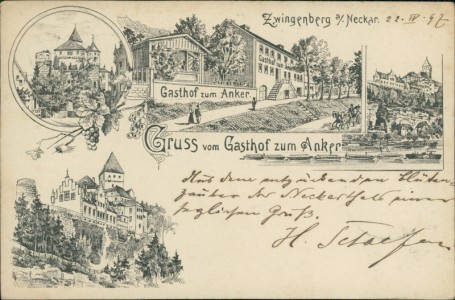 Zwingenberg a/ Neckar. 22. IV. 97
Gasthof zum Anker
Gasthof zum Anker.
Gruss vom Gasthof zum Anker
Aus dem entzückenden Blüten-
zauber des Neckarthals einen
herzlichen Gruß.
H.